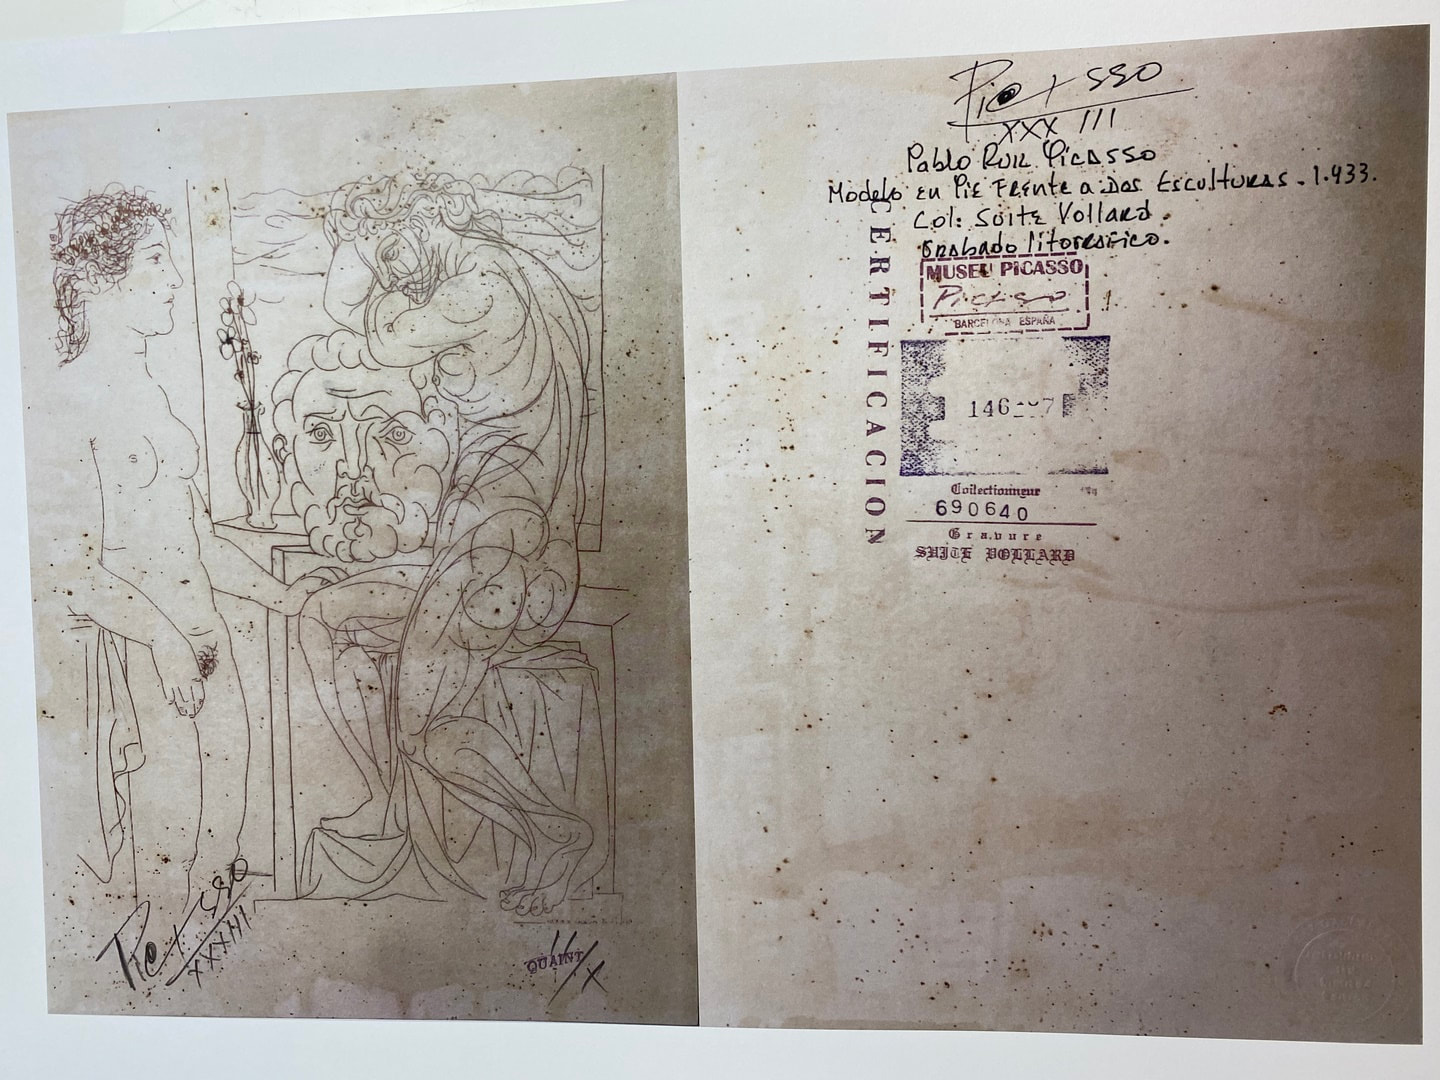 Picasso
XXXIII
QUAINT
II/X
Picasso
XXX III
Pablo Ruiz Picasso
Modelo en Pie Frente a Dos Esculturas. 1.933.
Col: Suite Vollard.
Grabado litografico.
CERTIFICACION
MUSEU PICASSO
Picasso
BARCELONA ESPAÑA
Collectionneur
690640
Gravure
SUITE VOLLARD